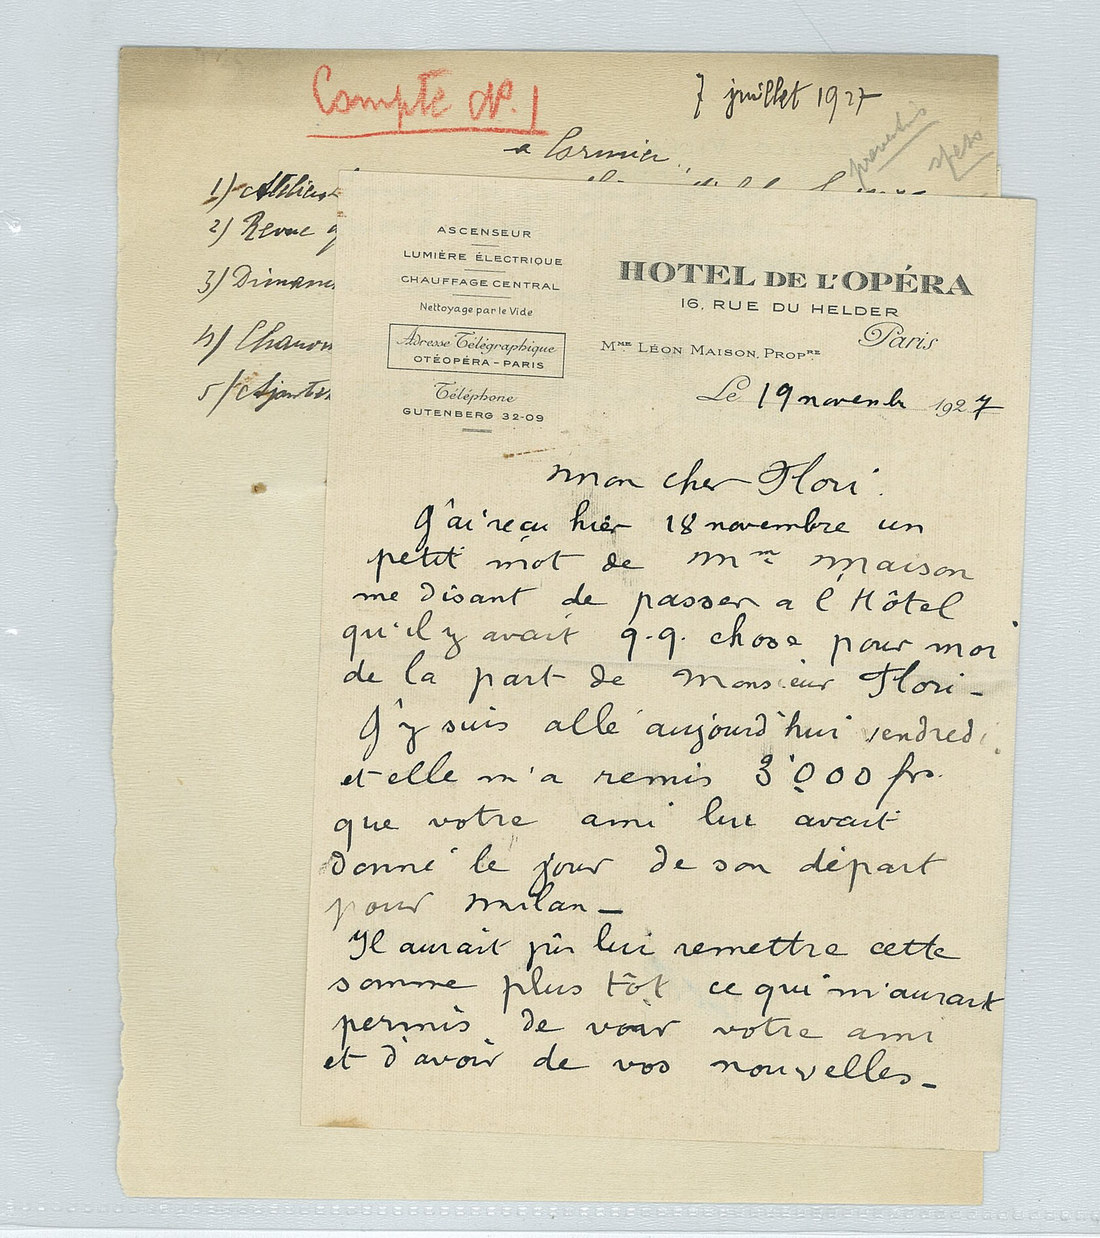 Compte N°. 1
7 juillet 1927
a Cormier
preventivi
spese
1)
2) Revue
3) Dimanc
4)
5)
ASCENSEUR
LUMIÈRE ÉLECTRIQUE
CHAUFFAGE CENTRAL
Nettoyage par le Vide
Adresse Télégraphique
OTÉOPÉRA-PARIS
Téléphone
GUTENBERG 32-09
HOTEL DE L'OPÉRA
16, RUE DU HELDER
Paris
MME LÉON MAISON, PROPRE
Le 19 novembre 1927
Mon cher Flori.
J'ai reçu hier 18 novembre un
petit mot de Mme Maison
me disant de passer a l'Hôtel
qu'il y avait q.q. chose pour moi
de la part de Monsieur Flori-
J'y suis allé aujourd'hui vendredi
et elle m'a remis 3'000 frs.
que votre ami lui avait
donné le jour de son départ
pour Milan_
Il aurait pû lui remettre cette
somme plus tôt ce qui m'aurait
permis de voir votre ami
et d'avoir de vos nouvelles_